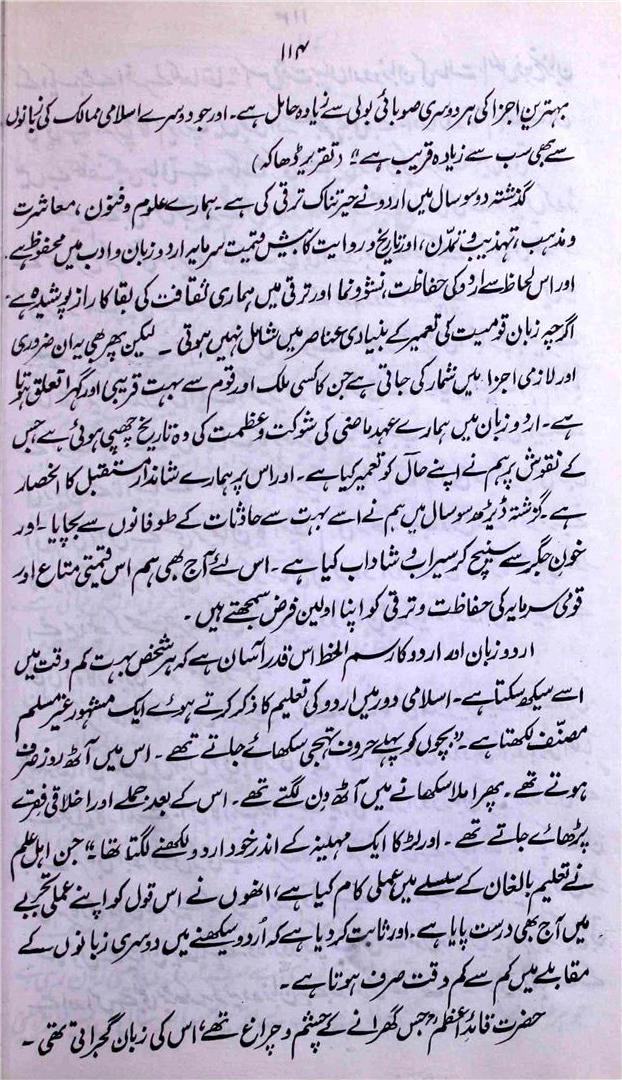 ۱۱۴
بہترین اجزا کی ہر دوسری صوبائی بولی سے زیادہ حامل ہے۔ اور جو دوسرے اسلامی ممالک کی زبانوں
سے بھی سب سے زیادہ قریب ہے“ (تقریر ڈھاکہ)
گذشتہ دو سو سال میں اردو نے حیرتناک ترقی کی ہے۔ ہمارے علوم و فنون، معاشرت
و مذہب، تہذیب و تمدّن، اور تاریخ و روایت کا بیش قیمت سرمایہ اردو زبان و ادب میں محفوظ ہے۔
اور اس لحاظ سے اردو کی حفاظت، نشوونما اور ترقی میں ہماری ثقافت کی بقا کا راز پوشیدہ ہے۔
اگرچہ زبان قومیت کی تعمیر کے بنیادی عناصر میں شامل نہیں ہوتی ۔ لیکن پھر بھی یہ ان ضروری
اور لازمی اجزا میں شمار کی جاتی ہے جن کا کسی ملک اور قوم سے بہت قریبی اور گہرا تعلق ہوتا
ہے۔ اردو زبان میں ہمارے عہد ماضی کی شوکت و عظمت کی وہ تاریخ چھپی ہوئی ہے جس
کے نقوش پر ہم نے اپنے حال کو تعمیر کیا ہے۔ اور اس پر ہمارے شاندار مستقبل کا انحصار
ہے۔ گزشتہ ڈیڑھ سو سال میں ہم نے اسے بہت سے حادثات کے طوفانوں سے بچایا۔ اور
خونِ جگر سے سینچ کر سیراب و شاداب کیا ہے۔ اس لئے آج بھی ہم اس قیمتی متاع اور
قومی سرمایہ کی حفاظت و ترقی کو اپنا اولین فرض سمجھتے ہیں۔
اردو زبان اور اردو کا رسم الخط اس قدر آسان ہے کہ ہر شخص بہت کم وقت میں
اسے سیکھ سکتا ہے۔ اسلامی دور میں اردو کی تعلیم کا ذکر کرتے ہوئے ایک مشہور غیر مسلم
مصنّف لکھتا ہے۔ ”بچوں کو پہلے حروف تہجی سکھائے جاتے تھے۔ اس میں آٹھ روز صرف
ہوتے تھے۔ پھر املا سکھانے میں آٹھ دن لگتے تھے۔ اس کے بعد جملے اور اخلاقی فقرے
پڑھائے جاتے تھے۔ اور لڑکا ایک مہینہ کے اندر خود اردو لکھنے لگتا تھا“ جن اہل علم
نے تعلیم بالغان کے سلسلے میں عملی کام کیا ہے، انھوں نے اس قول کو اپنے عملی تجربے
میں آج بھی درست پایا ہے۔ اور ثابت کر دیا ہے کہ اُردو سیکھنے میں دوسری زبانوں کے
مقابلے میں کم سے کم وقت صرف ہوتا ہے۔
حضرت قائدِ اعظمؒ جس گھرانے کے چشم و چراغ تھے، اس کی زبان گجراتی تھی۔